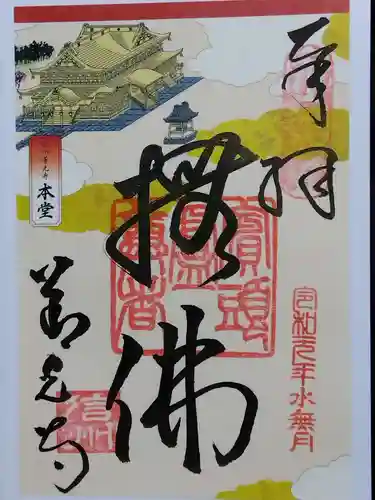 奉拝
令和元年水無月
撫佛
賓頭盧尊者
善光寺
信州
善光寺
本堂